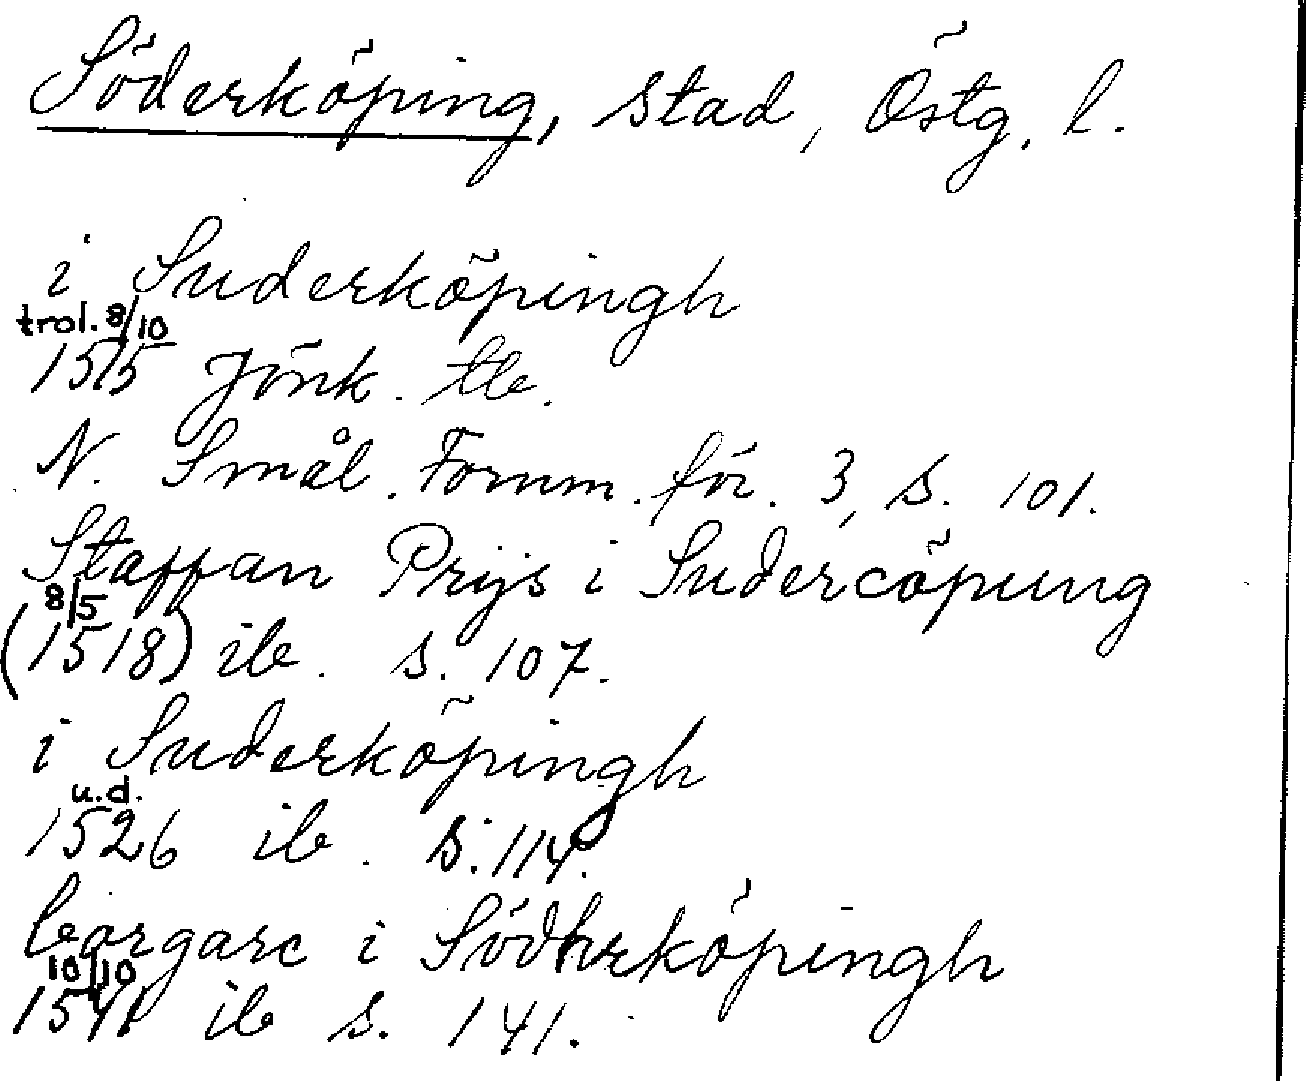 Söderköping, stad, Östg. l.
i Suderköpingh
trol. 8/10
1515 Jönk. tb.
N. Smål. Fornm. för. 3, s. 101.
Staffan Prijs i Sudercöpung
8/5
(1518) ib. s. 107.
i Suderköpingh
u.d.
1526 ib. s. 114.
borgare i Södherköpingh
10/10
1541 ib s. 141.